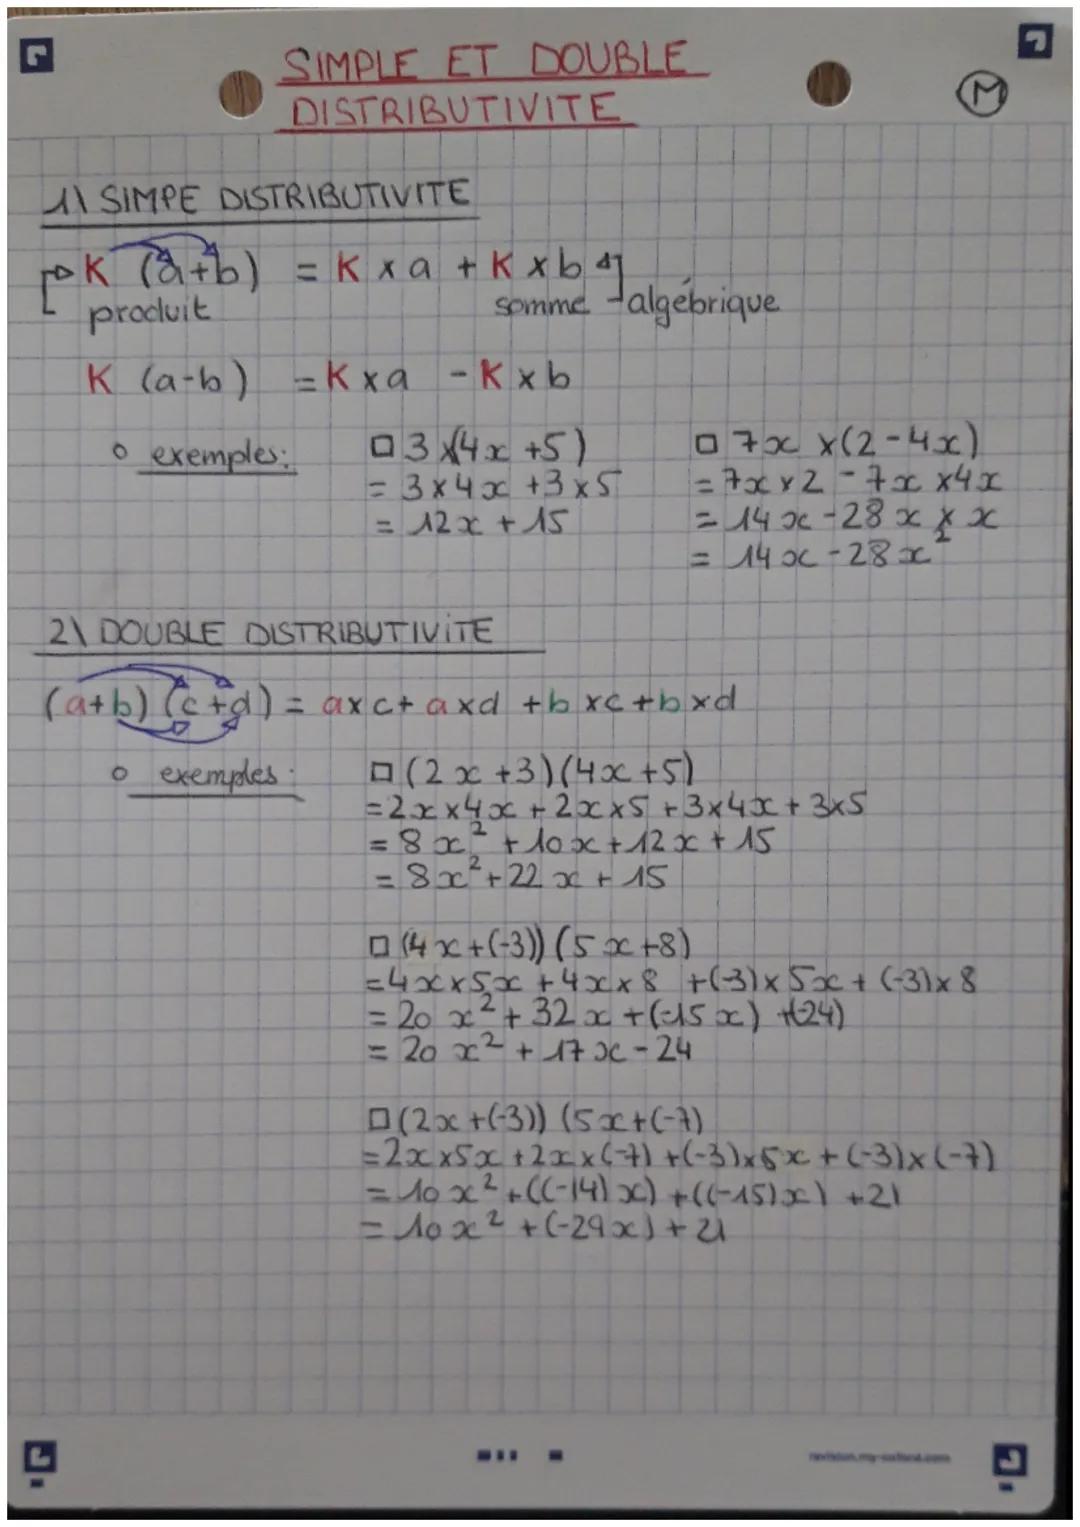 SIMPLE ET DOUBLE
DISTRIBUTIVITE
M
1\ SIMPE DISTRIBUTIVITE
K (a+b) = K x a + K x b
produit somme algébrique
K (a-b) = K x a - K x b
exemples:
3 x(4x +5)
= 3 x 4x + 3 x 5
= 12x + 15
7x x (2 - 4x)
= 7x x 2 - 7x x 4x
= 14x - 28x x x
= 14x - 28x²
2\ DOUBLE DISTRIBUTIVITE
(a+b) (c+d) = a x c + a x d + b x c + b x d
exemples:
(2x +3)(4x +5)
= 2x x 4x + 2x x 5 + 3 x 4x + 3 x 5
= 8x² + 10x + 12x + 15
= 8x² + 22x + 15
(4x + (-3)) (5x +8)
= 4x x 5x + 4x x 8 + (-3) x 5x + (-3) x 8
= 20x² + 32x + (-15x) + (-24)
= 20x² + 17x - 24
(2x + (-3)) (5x + (-7)
= 2x x 5x + 2x x (-7) + (-3) x 5x + (-3) x (-7)
= 10x² + ((-14)x) + ((-15)x) + 21
= 10x² + (-29x) + 21
revision.my-oxford.com